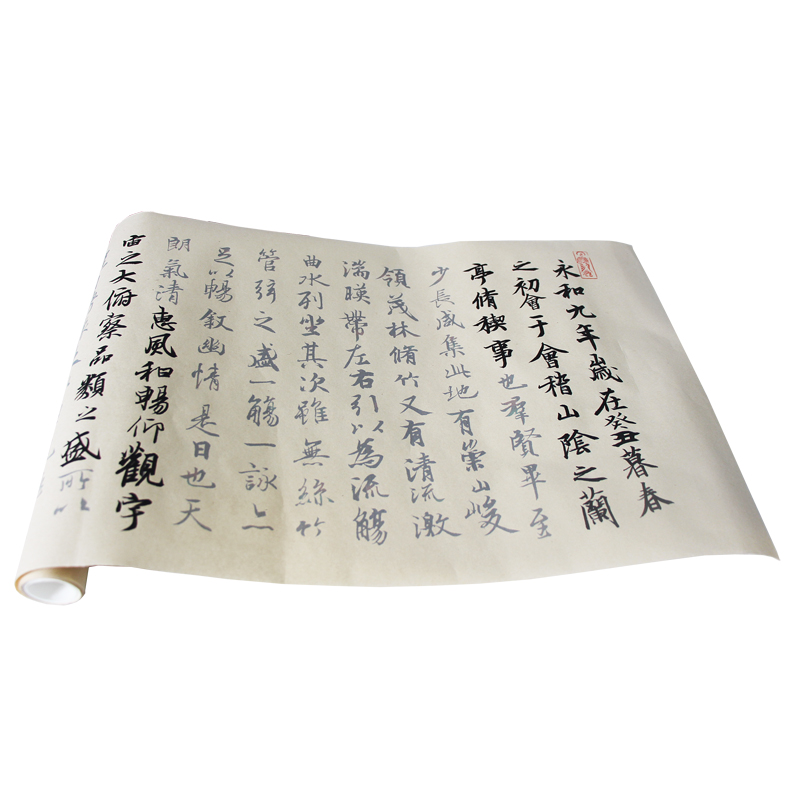 永和九年歲在癸丑暮春
之初會于會稽山陰之蘭
亭脩稧事也羣賢畢至
少長咸集此地有崇山峻
領茂林脩竹又有清流激
湍暎帶左右引以為流觴
曲水列坐其次雖無絲竹
管弦之盛一觴一詠亦
足以暢叙幽情是日也天
朗氣清惠風和暢仰觀宇
宙之大俯察品類之盛所以